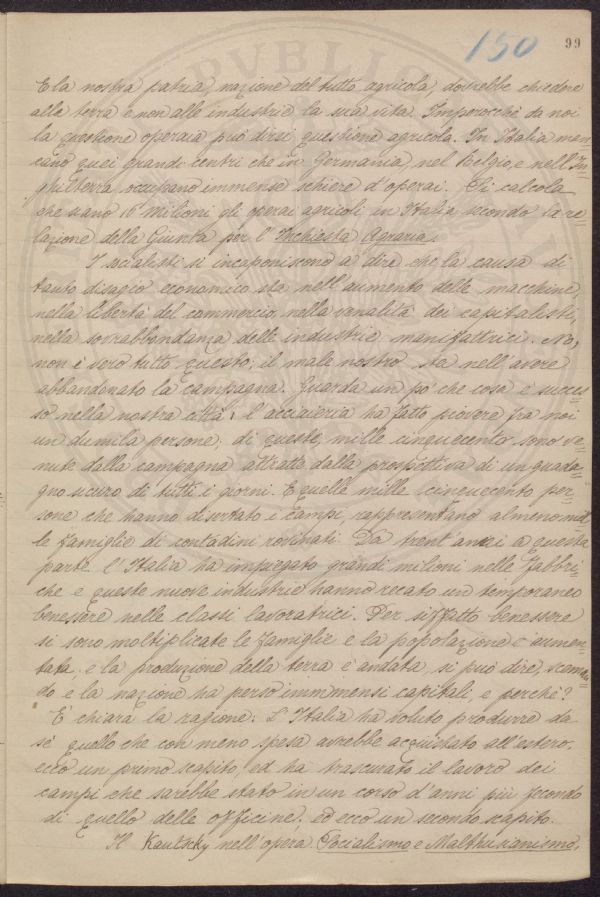 150 99
E la nostra patria, nazione del tutto agricola, dovrebbe chiedere
alla terra e non alle industrie la sua vita. Imperocchè da noi
la questione operaia può dirsi questione agricola. In Italia man=
cano quei grandi centri che in Germania, nel Belgio, e nell'In=
ghilterra, occupano immense schiere d'operai. Si calcola
che siano 16 milioni gli operai agricoli in Italia secondo la re=
lazione della Giunta per l'Inchiesta Agraria.
I socialisti si incaponiscono a dire che la causa di
tanto disagio economico sta nell'aumento delle macchine,
nella libertà del commercio, nella venalità dei capitalisti,
nella sovrabbondanza delle industrie manifattrici. No,
non è vero tutto questo; il male nostro sta nell'avere
abbandonato la campagna. Guarda un pò che cosa è succes=
so nella nostra città: l'acciaieria ha fatto piovere fra noi
un dumila persone; di queste, mille cinquecento sono ve=
nute dalla campagna attratte dalla prospettiva di un guada=
gno sicuro di tutti i giorni. E quelle mille cinquecento per=
sone che hanno disertato i campi, rappresentano almeno mil
le famiglie di contadini rovinati. Da trent'anni a questa
parte l'Italia ha impiegato grandi milioni nelle fabbri=
che e queste nuove industrie hanno recato un temporaneo
benessere nelle classi lavoratrici. Per siffatto benessere
si sono moltiplicate le famiglie e la popolazione è aumen=
tata; e la produzione della terra è andata, si può dire, sceman
do e la nazione ha perso immensi capitali, e perchè?
E' chiara la ragione: L'Italia ha voluto produrre da
sè quello che con meno spesa avrebbe acquistato all'estero.
ecco un primo scapito, ed ha trascurato il lavoro dei
campi che sarebbe stato in un corso d'anni più fecondo
di quello delle officine; ed ecco un secondo scapito.
Il Kautsky nell'opera Socialismo e Malthusianismo,